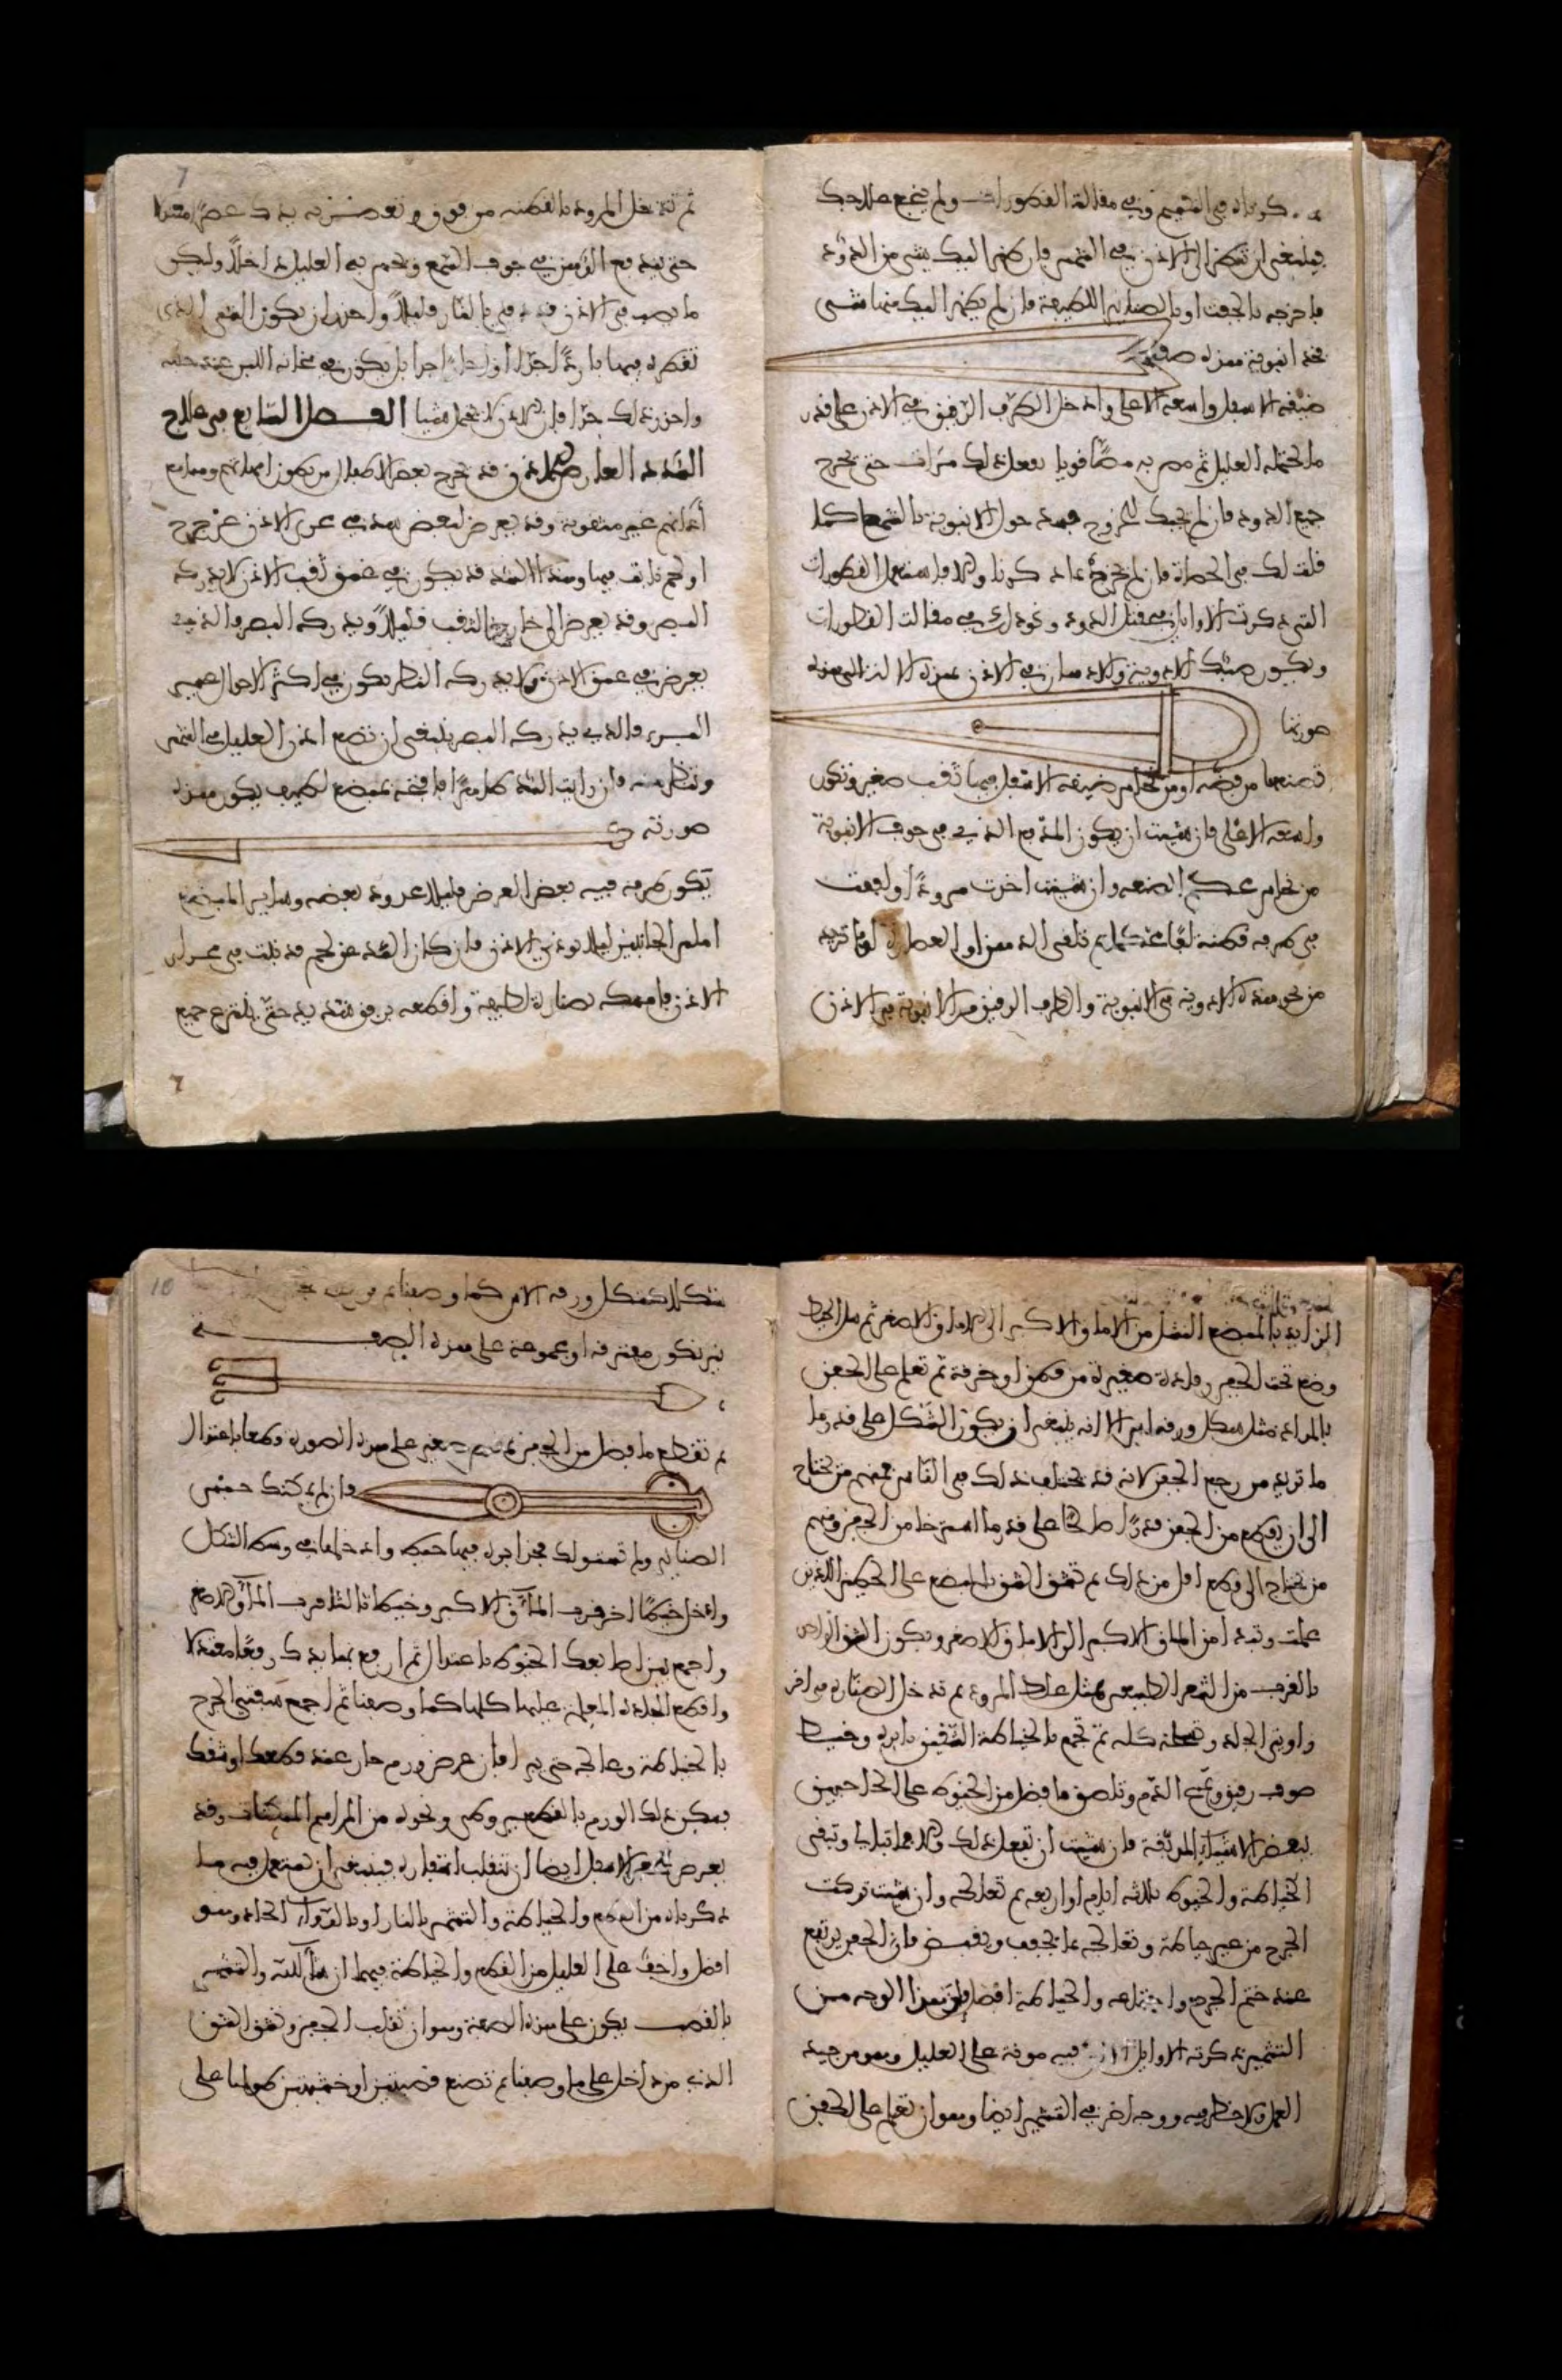 ذكرناه في التقسيم وفي مقالة القطورات ولم ينجع علاجك
فينبغي ان تنظر الى الاذن في الشمس فان ظهر اليك شي من الدود
فاخرجه بالجفت او بالصنانير اللطيفة فان لم يظهر اليك منها شي
فخذ انبوبة هذه صفتها
ضيقة الاسفل واسعة الاعلى وادخل الطرف الرقيق في الاذن على قدر
ما يحتمله العليل ثم مص به مصا قويا تفعل ذلك مرات حتى يخرج
جميع الدود فان لم يجبك للخروج فـ حول الانبوبة بالشمع كما
قلت لك في الحصاة فان لم يخرج بما ذكرنا والا فاستعمل القطورات
التي ذكرت الاوايل في قتل الدود وتجد ذلك في مقالة القطورات
ويكون صبك الادوية والادهان في الاذن بهذه الالة التي هذه
صورتها
تصنعها من فضة او من نحاس ضيقة الاسفل فيها ثقب صغير وتكون
واسعة الاعلى فان شيت ان يكون المدفع الذي في جوف الانبوبة
من نحاس محكم الصنعة وان شيت اخذت مرودا ولففت
في طرفه قطنة لفا محكما ثم تلقي الدهن او العصارة او ما تريد
من نحو هذه الادوية في الانبوبة والطرف الرقيق من الانبوبة في الاذن
7
ثم تدخل المرود بالقطنة من فوق وتعصر به يدك عصرا معتدلا
حتى يندفع الدهن في جوف السمع ويحس به العليل داخلا وليكن
ما يصب في الاذن قد دفي بالنار قليلا واحذر ان يكون الشي الذي
تقطره فيها باردا جدا او حارا جدا بل يكون في سخانة اللبن عند حلبه
واحذر ذلك جدا فان الاذن لا تحمل شيا الفصل السابع في علاج
السدد العارض للاذن قد يخرج بعض الاطفال من بطون امهاتهم ومسامع
آذانهم غير مثقوبة وقد يعرض لبعض هذه في مجرى الاذن عن جرح
او لحم نابت فيها وهذه السدد قد تكون في عمق ثقب الاذن لا يدركه
البصر وقد يعرض الى خارج من الثقب قليلا ويدركه البصر فالذي
يعرض في عمق الاذن ولا يدركه البصر يكون في اكثر الاحوال عسير
البرء والذي يدركه البصر فينبغي ان تضع اذن العليل في الشمس
وتنظر منه فان رايت السدد ظاهرا فافتحه بمبضع لطيف يكون هذه
صورته
يكون طرفه فيه بعض العرض قليلا محدود بعضه وساير المبضع
املس الجانبين ليلا يوذي الاذن فان كان السدد من لحم قد نبت في مجرى
الاذن فامسكه بصنارة لطيفة واقطعه برفق شديد حتى ينتزع جميع
7
الزايد بالمبضع النشل من الاماق الاكبر الى الاماق الاصغر ثم مل الخيط
وضع تحت الجفن رفادة صغيرة من قطن او خرقة ثم تعلم على الجفن
بالمداد مثل شكل ورقة اس الا انه ينبغي ان يكون الشكل على قدر ما
ما تريد من رفع الجفن لانه قد يختلف ذلك في الناس فمنهم من يحتاج
الى ان يقطع من الجفن قدرا صالحا على قدر ما استرخا من الجفن ومنهم
من يحتاج الى قطع اقل من ذلك ثم تشق الشق بالمبضع على الخطين اللذين
علمت وتبدا من الماق الاكبر الى الاماق الاصغر ويكون الشق الواحد
بالقرب من الشعر الطبيعي مثل غلظ المرود ثم تدخل الصنارة في احدى
زاويتي الجلد وتسلخه كله ثم تجمع بالخياطة الشفتين بابرة وخيط
صوف رقيق وتمسح الدم وتلصق ما فضل من الخيوط على الحاجبين
ببعض الاشيا المدبقة فان شيت ان تفعل ذلك والا فما تبالي وتبقى
الخياطة والخيوط ثلاثة ايام او اربعة ثم تعالجه وان شيت تركت
الجرح من غير خياطة وتعالجه بما يجفف ويقبض فان الجفن يرتفع
عند ختم الجرح واجتماعه والخياطة افضل وهذا الوجه من
التشمير ذكرته الاوايل الا ان فيه مونة على العليل وهو من جيد
العمل ولا خطر فيه ووجه اخر في التشمير ايضا وهو ان تعلم على الجفن
10
شكلا كشكل ورقة الاس كما وصفنا ثم
نير تكون مفترقة او مجموعة على هذه الصفـ ـة
ثم تقطع ما فضل من الجفن بمقص صغير على هذه الصورة قطعا باعتدال
فان لم يمكنك حبس
الصنانير ولم تستو لك فخذ ابرة فيها خيط وادخلها في وسط الشكل
وادخل خيطا اخر قرب الماق الاكبر وخيطا ثالثا قرب الماق الاصغر
واجمع بين اصابعك الخيوط باعتدال ثم ارفع بها يدك رفعا معتدلا
واقطع الجلدة المعلم عليها كلها كما وصفنا ثم اجمع شفتي الجرح
بالخياطة وعالجه حتى يبرا فان عرض ورم حار عند قطعك او شقك
فسكن ذلك الورم بالقيروطي ونحوه من المراهم المسكنات وقد
يعرض للجفن الاسفل ايضا ان تنقلب اشفاره فينبغي ان تستعمل فيه ما
ذكرناه من القطع والخياطة والتشمير بالنار او بالدوا الحاد وهو
افضل واخف على العليل من القطع والخياطة فيهما ان شاء الله والتشمير
بالقصب يكون على هذه الصفة وهو ان تقلب الجفن وتشق الشق
الذي من داخل على ما وصفنا ثم تصنع قصبتين او خشبتين طولهما على